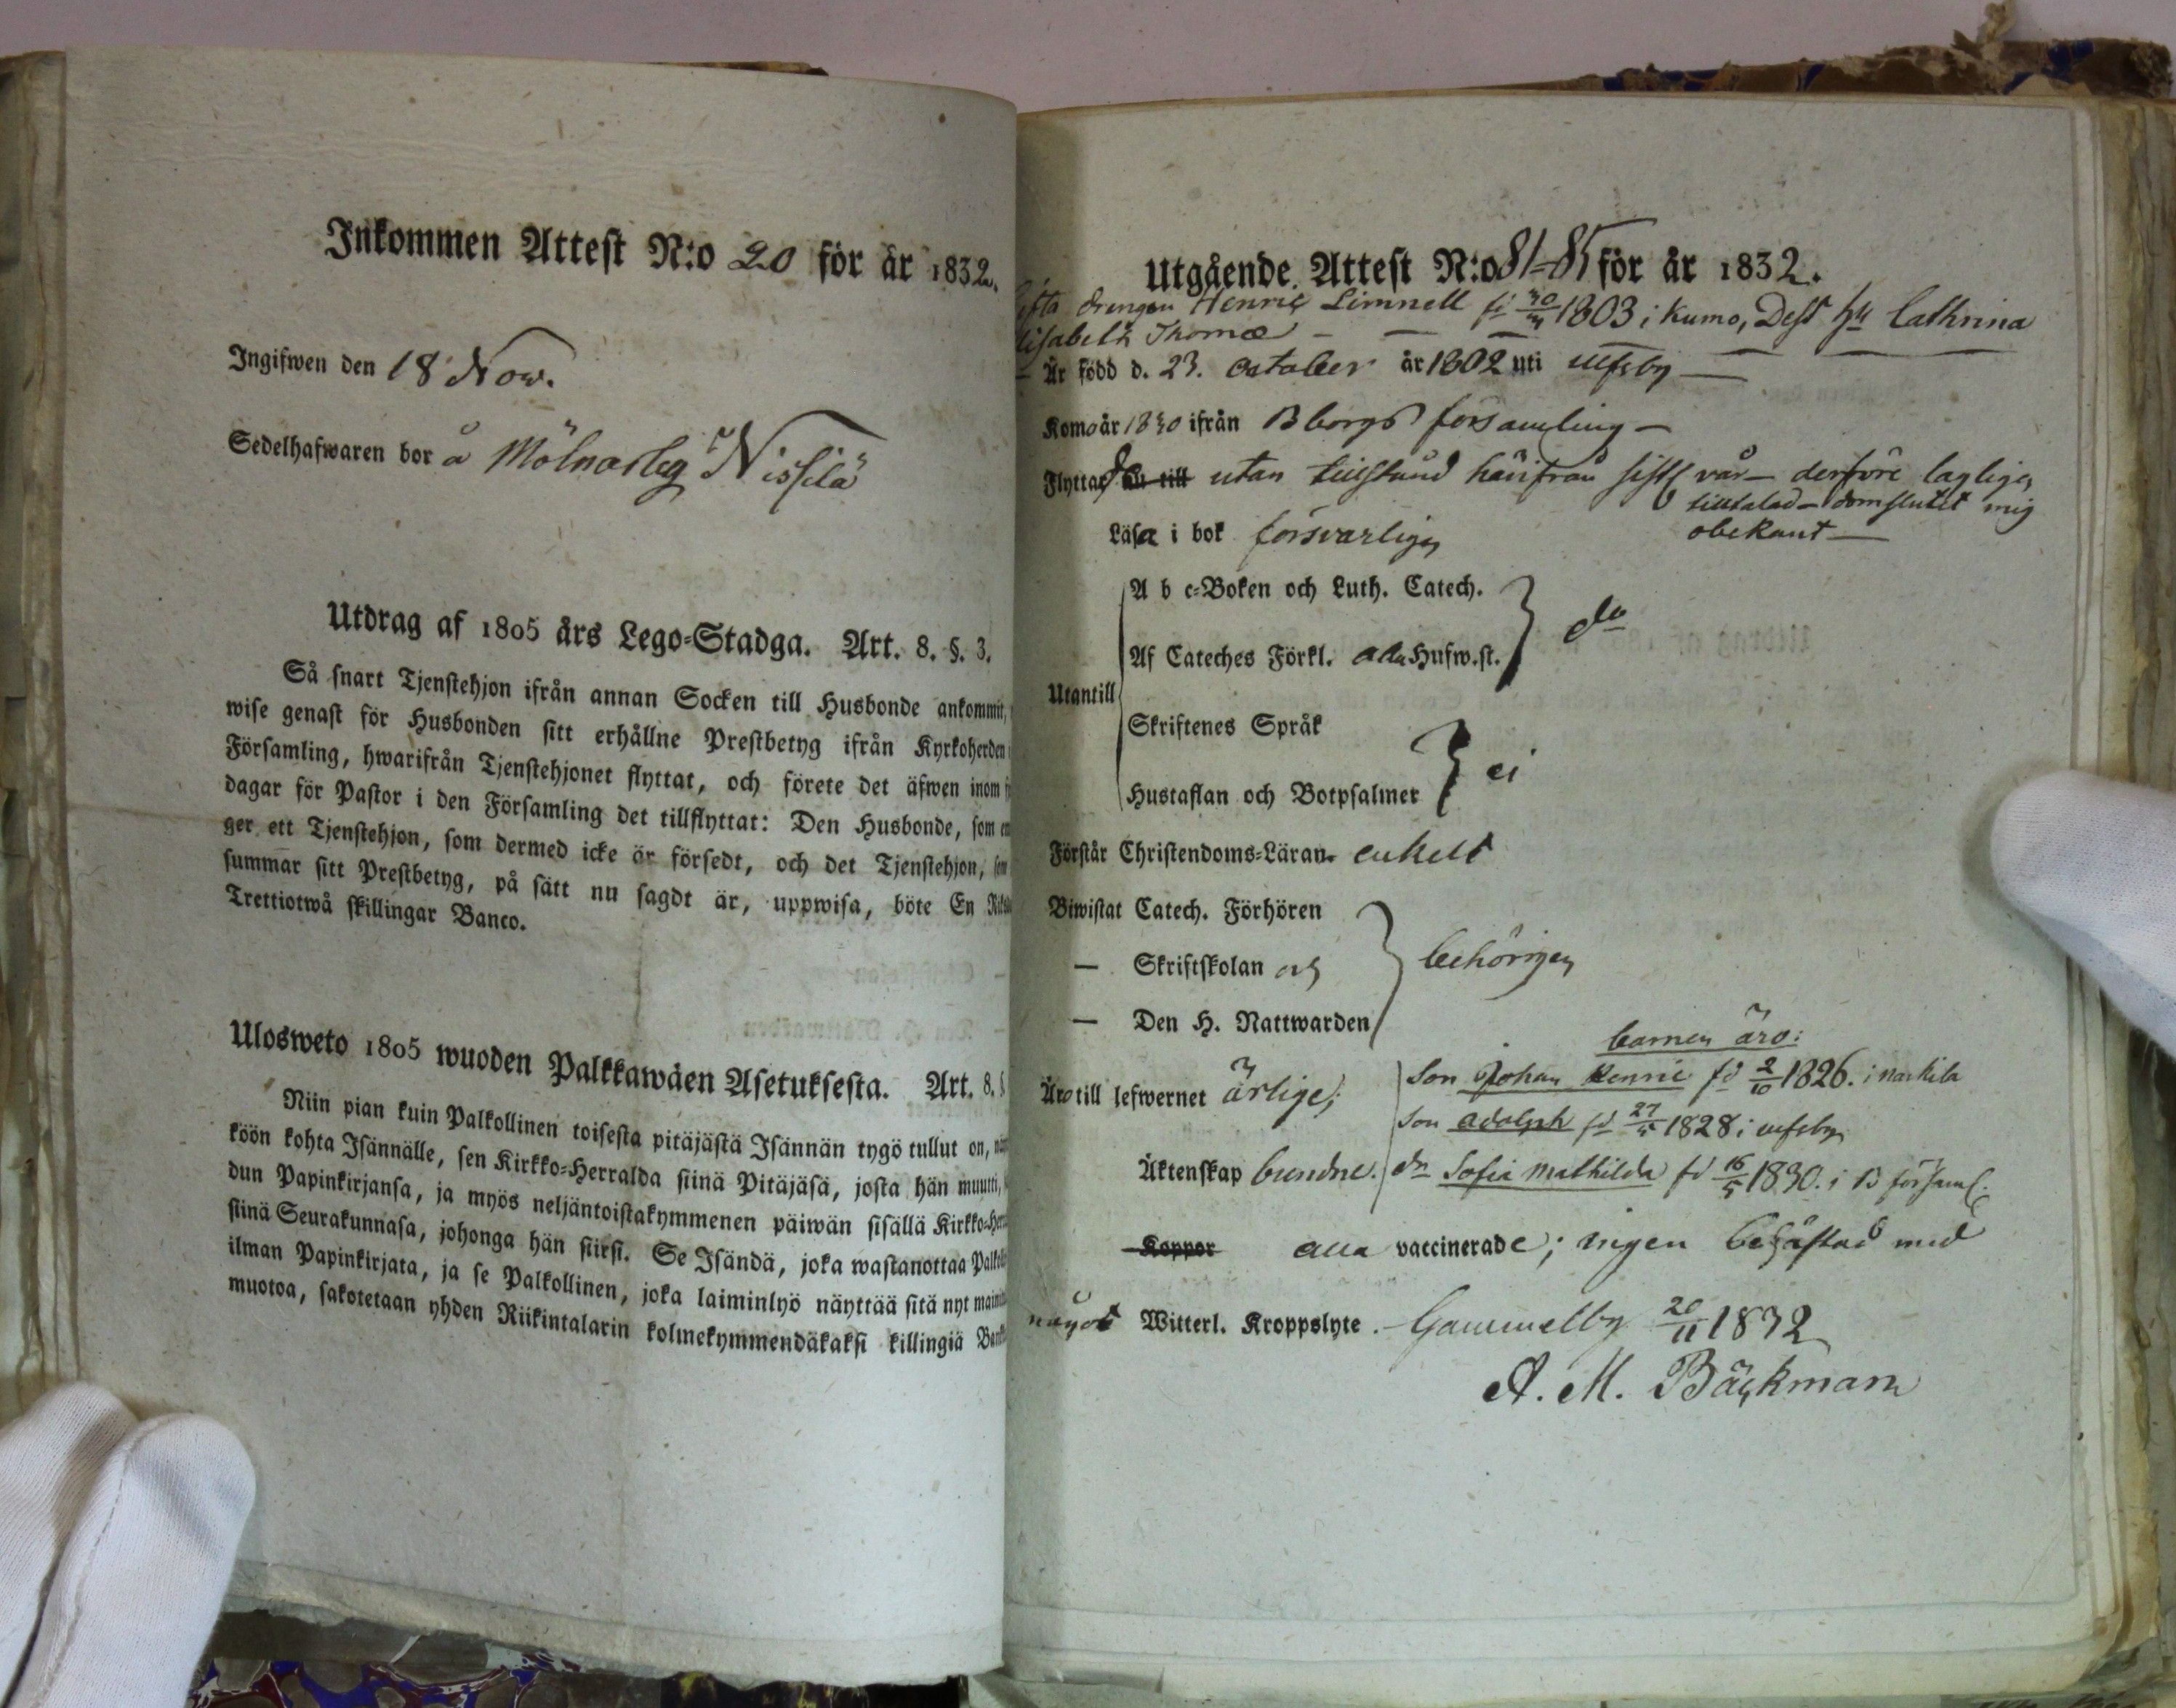 Inkommen Attest N:o 20 för år 1832.
Ingifwen den 18 Nov.
Sedelhafwaren bor å Mölnarbg Nissilä
Utdrag af 1805 års Lego-Stadga. Art. 8. §. 3.
Så snart Tjenstehjon ifrån annan Socken till Husbonde ankommit,
wise genast för Husbonden sitt erhållne Prestbetyg ifrån Kyrkoherden
Församling, hwarifrån Tjenstehjonet flyttat, och förete det äfwen inom
dagar för Pastor i den Församling det tillflyttat: Den Husbonde, som
ger ett Tjenstehjon, som dermed icke är försedt, och det Tjenstehjon,
summar sitt Prestbetyg, på sätt nu sagdt är, uppwisa, böte En
Trettiotwå skillingar Banco.
Ulosweto 1805 wuoden Palkkawäen Asetuksesta. Art. 8. §
Niin pian kuin Palkollinen toisesta pitäjästä Isännän tygö tullut on,
köön kohta Isännälle, sen Kirkko-Herralda siinä Pitäjäsä, josta hän muutti,
dun Papinkirjansa, ja myös neljäntoistakymmenen päiwän sisällä Kirkko-
siinä Seurakunnasa, johonga hän siirsi. Se Isändä, joka wastanottaa
ilman Papinkirjata, ja se Palkollinen, joka laiminlyö näyttää sitä nyt
muotoa, sakotetaan yhden Riikintalarin kolmekymmendäkaksi killingiä
Utgående Attest N:o 81-85 för år 1832.
drengen Henric Limnell fd 30/3 1803 i Kumo, Dess hu Cathrina
lisabeth Thomæ
Är född d. 23. october år 1802 uti ulfsby
Komo år 1830 ifrån Bborgs församling
Flyttat nu till utan tillstånd härifrån sistl vår - derföre lagligen
tilltalad - domslutet mig
obekant
Läsa i bok försvarligen
A b c-Boken och Luth. Catech.
do
Af Cateches Förkl. Hufw.st.
Utantill
Skriftenes Språk
ei
Hustaflan och Botpsalmer
Förstår Christendoms-Läran enkelt
Biwistat Catech. Förhören
— Skriftskolan och
behörigen
— Den H. Nattwarden
barnen äro:
Äro till lefwernet ärlige;
Son Johan Henric fd 2/10 1826. i
Son Adolph fd 27/5 1828 i ulfsby
Äktenskap bundne.
dr Sofia Mathilda fd 16/5 1830. i B församl.
Koppor alla vaccinerade; ingen behäftad med
något Witterl. Kroppslyte. Gammelby 20/11 1832
A. M. Bäckman